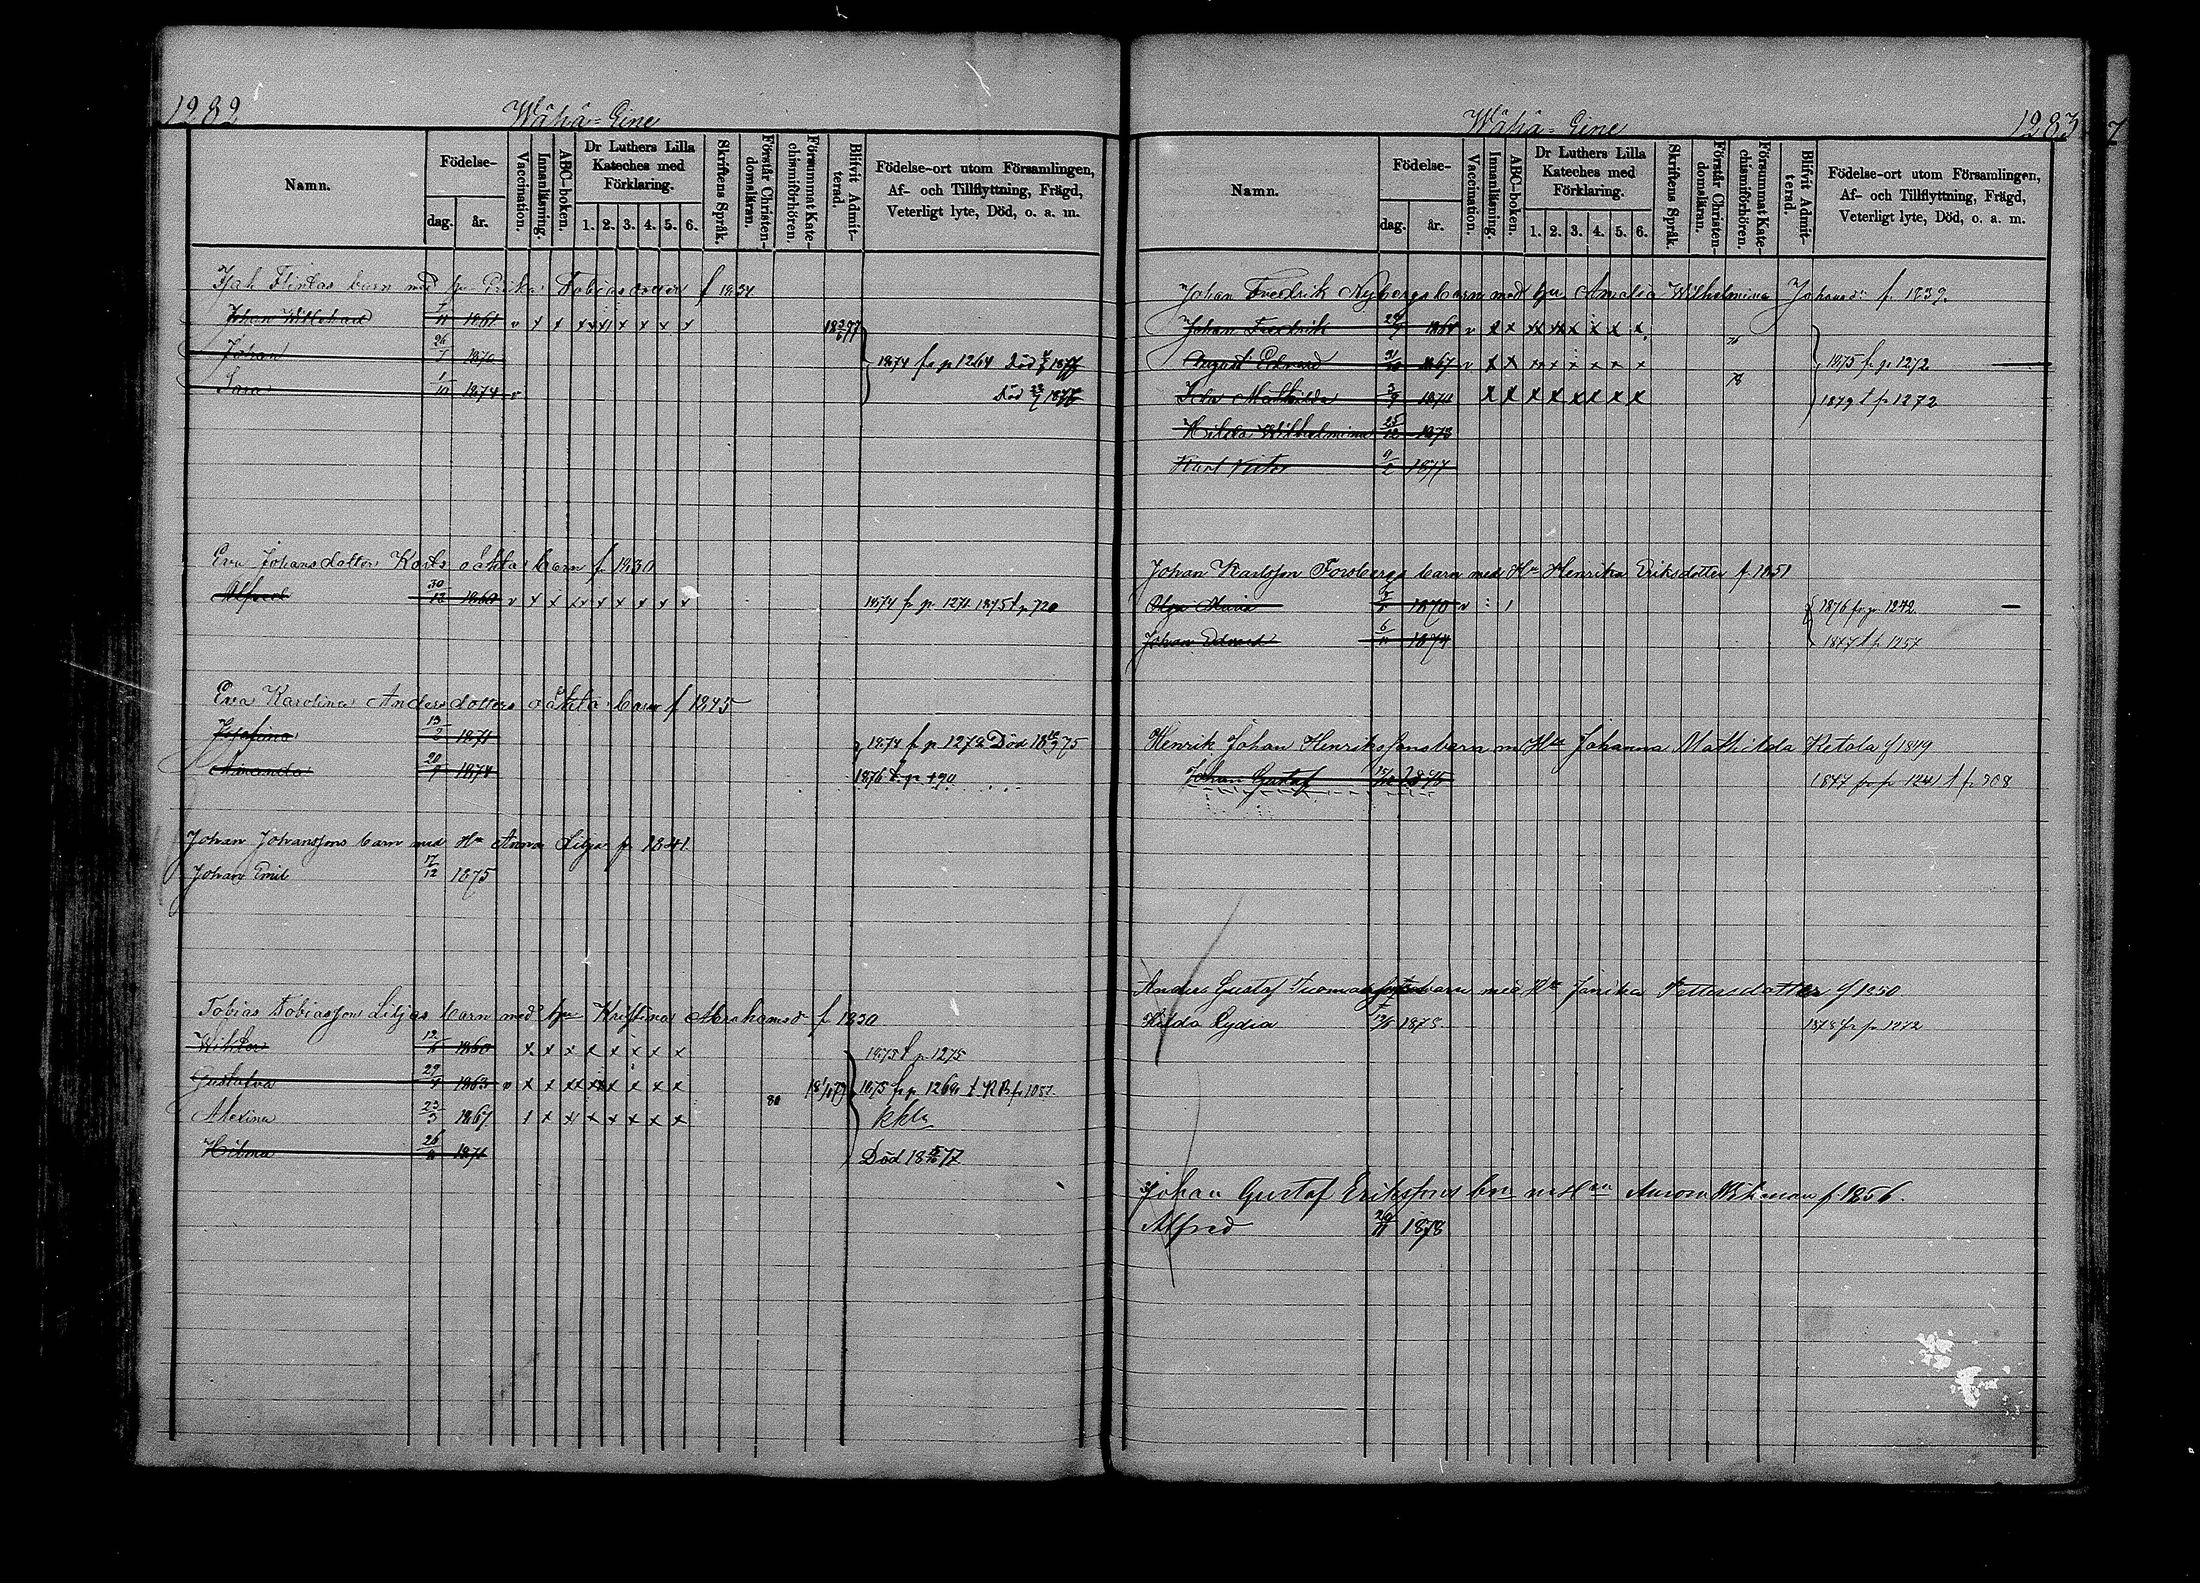 1282
Wähä-Eine
Namn.
Födelse-
dag.
år.
Vaccination.
Innanläsning.
ABC-boken.
Dr Luthers Lilla Kateches med Förklaring.
1. 2. 3. 4. 5. 6.
Skriftens Språk.
Förstår Christendomsläran.
Försummat Katechismiförhören.
Blifvit Admitterad.
Födelse-ort utom Församlingen,
Af- och Tillflyttning, Frägd,
Veterligt lyte, Död, o. a. m.
barn med hu Erika Tobiasdotter f 1834
Johan 7/11 1861 v x x
Johan 26/7 1870 1874 fr p 1264 Död 1877
Sara 1/10 1874 v Död 1877
Eva Johansdotter oäkta barn f 1830
Alfred 30/12 1860 v x x x x x x x x 1874 fr p 1271 1875 t p 720
Eva Karolina Andersdotters oäkta barn f 1845
Josefina 13/2 1871 1874 fr p 1272 Död 1875
Amanda 20/7 1874 1876 t p 190
Johan Johanssons barn med Hu Anna Lilja f 1841.
Johan Emil 17/12 1875
Tobias Tobiasson Liljas barn med hu Kristina Abrahamsd f 1830
Wiktor 12/11 1860 x x x x x x x x 1875 t p 1275
Gustafva 29/7 1863 v x x 1875 fr p 1260 t RB p 1051.
Alexina 23/3 1867 80
Hilma 26/11 1871 Död 1877
1283
Wähä-Eine
Namn.
Födelse-
dag.
år.
Vaccination.
Innanläsning.
ABC-boken.
Dr Luthers Lilla Kateches med Förklaring.
1. 2. 3. 4. 5. 6.
Skriftens Språk.
Förstår Christendomsläran.
Försummat Katechismiförhören.
Blifvit Admitterad.
Födelse-ort utom Församlingen,
Af- och Tillflyttning, Frägd,
Veterligt lyte, Död, o. a. m.
Johan Fredrik Nybergs barn med hu Amalia Wilhelmina Johansd f. 1839.
Johan Fredrik 1864 v x x
August Edvard 1867 v x x 1875 fr p 1272
Ida Mathilda 1870 x x x x x x x x 1879 t p 1272
Hilda Wilhelmina 25/12 1873
Karl Viktor 9/2 1877
Johan Karlsson Forsbergs barn med Hu Henrika Eriksdotter f. 1851
Olga Maria 1870 v 1876 fr p 1242
Johan Edvard 6/11 1874 1877 t p 1257
Henrik Johan Henrikssons barn m Hu Johanna Mathilda Ketola f 1849
Johan Gustaf 1875 1877 fr p 1241 t p 908
Anders Gustaf barn med Hu Janika Pettersdotter f 1850
Hilda Lydia 1878. 1878 fr p 1272
Johan Gustaf Erikssons bn m Hu f. 1856.
Alfred 1878